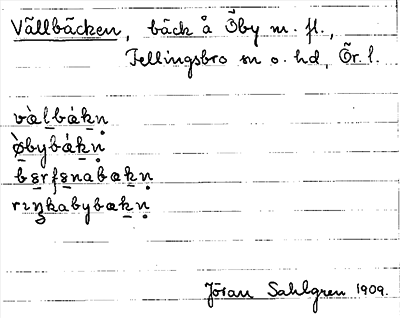 Vällbäcken, bäck å Öby m. fl.,
Fellingsbro sn o. hd, Ör. l.
væ̀lbǽkn̥
ø̀bybǽkn̥
bærsænabækn̥
rıŋkabybækn̥
Jöran Sahlgren 1909.